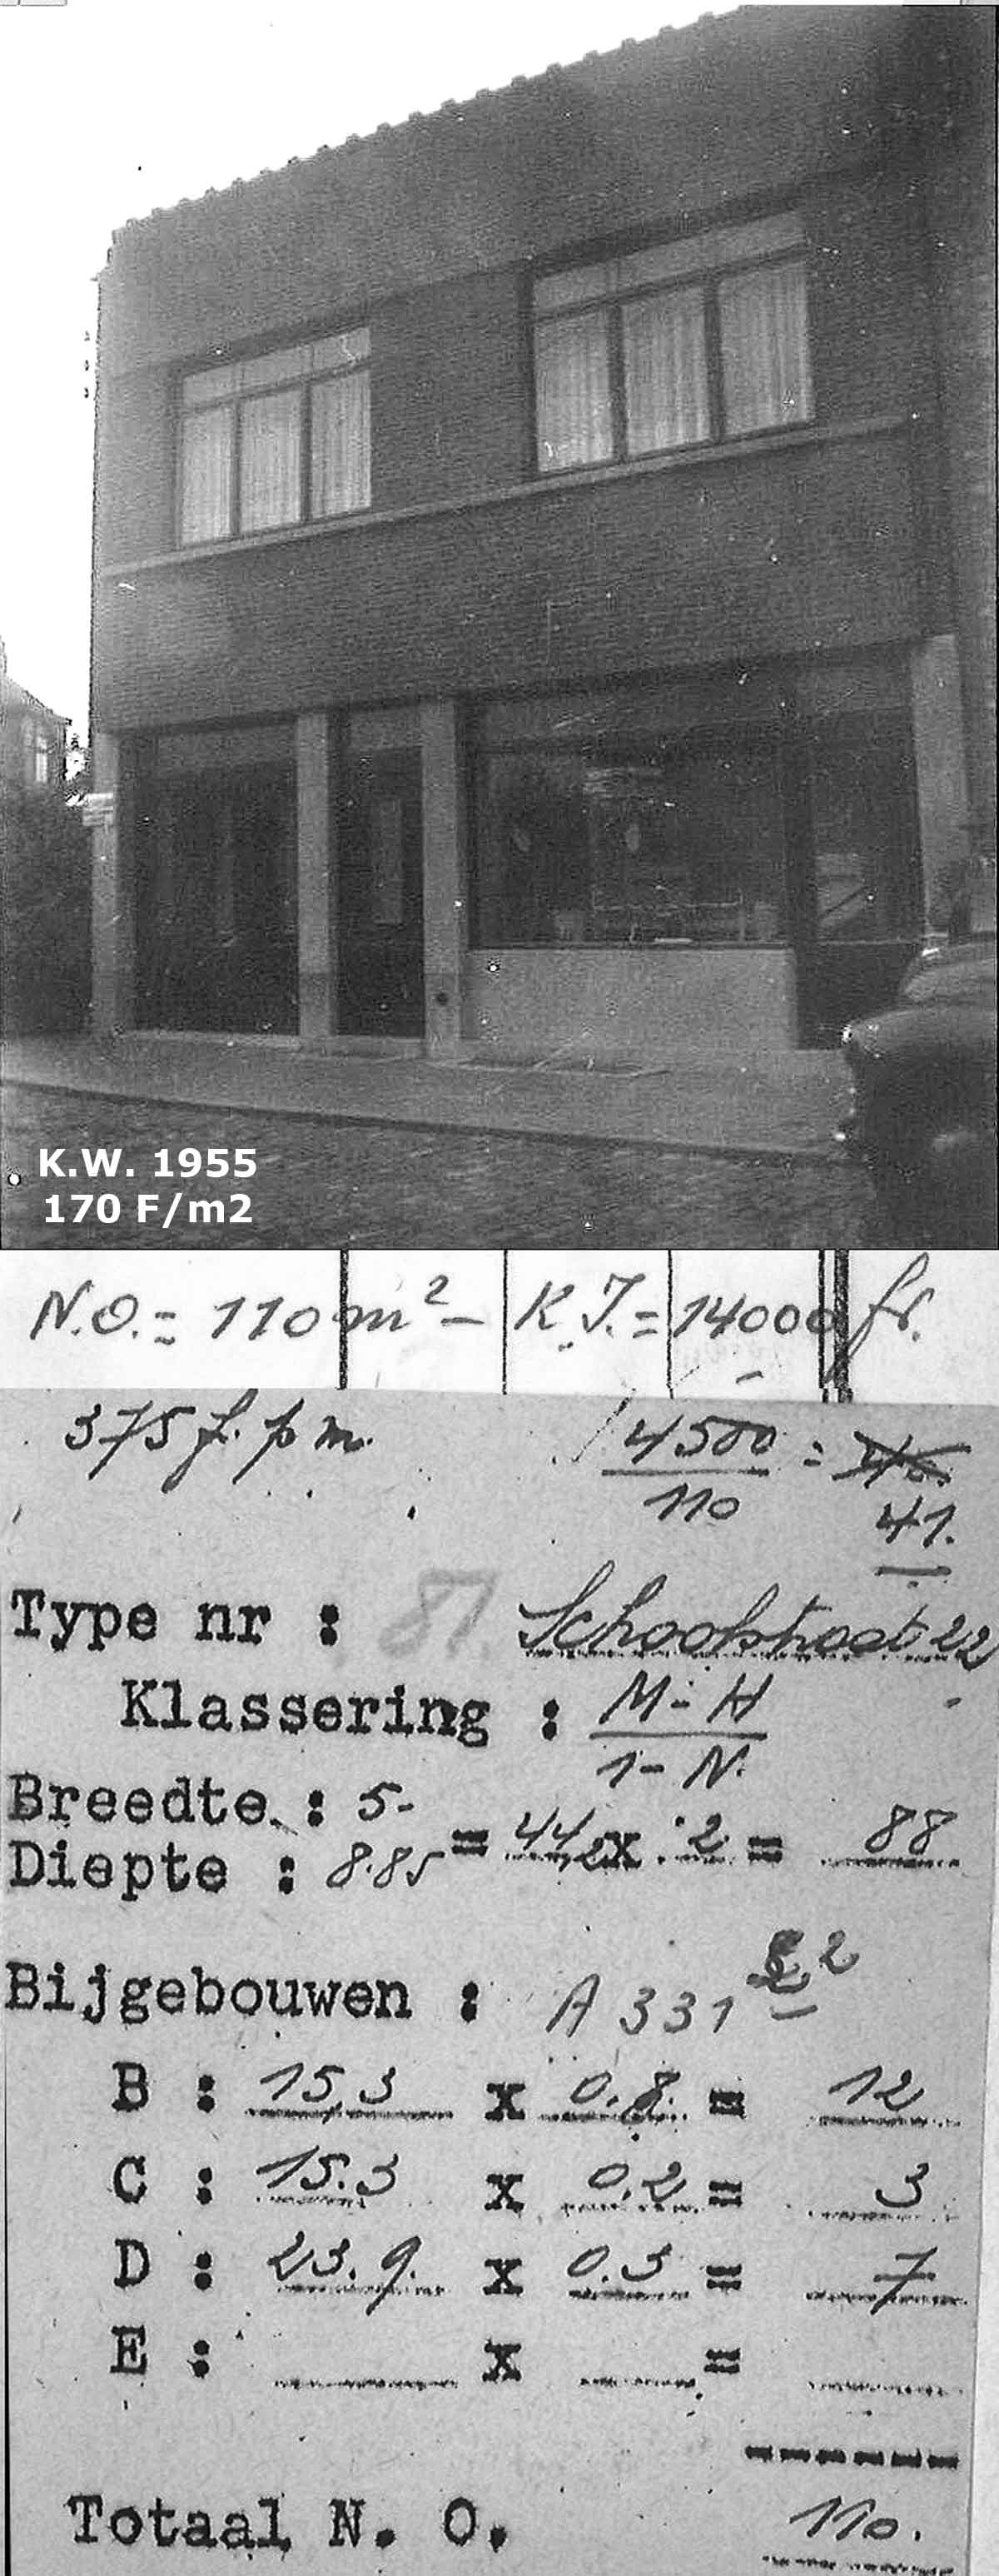 K.W. 1955
170 F/m2
N.O. = 110 m² - K.I. = 14000 fr.
375 f. p m. 4500 =
110 41.
Type nr : 87 Schoolstraat 22
Klassering : M - H
1 - N.
Breedte : 5-
Diepte : 8.85 = 44,2 x 2 = 88
Bijgebouwen : A 331 2
B : 15,3 x 0.8 = 12
C : 15.3 x 0.2 = 3
D : 23.9. x 0.3 = 7
E : x =
Totaal N. O. 110.